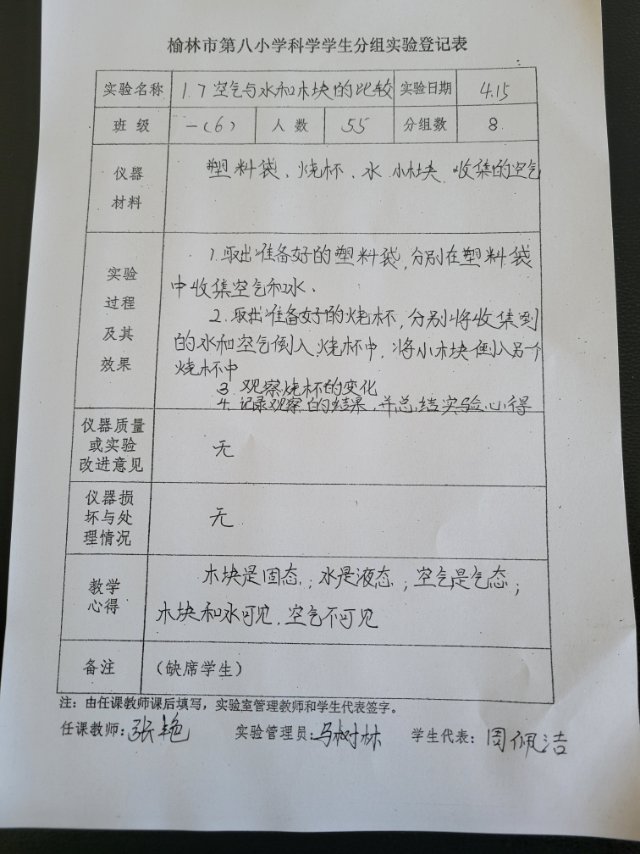 榆林市第八小学科学学生分组实验登记表
实验名称 1.7空气与水和木块的比较 实验日期 4.15
班 级 一(6) 人 数 55 分组数 8
仪器
材料
塑料袋、烧杯、水 小木块 收集的空气
实验
过程
及其
效果
1.取出准备好的塑料袋,分别在塑料袋
中收集空气和水.
2.取出准备好的烧杯,分别将收集到
的水和空气倒入烧杯中,将小木块倒入另个
烧杯中
3 观察烧杯的变化
4.记录观察的结果,并总结实验心得
仪器质量
或实验
改进意见
无
仪器损
坏与处
理情况
无
教学
心得
木块是固态;水是液态;空气是气态;
木块和水可见.空气不可见
备注 (缺席学生)
注:由任课教师课后填写,实验室管理教师和学生代表签字。
任课教师:张艳 实验管理员:马树林 学生代表:周佩洁